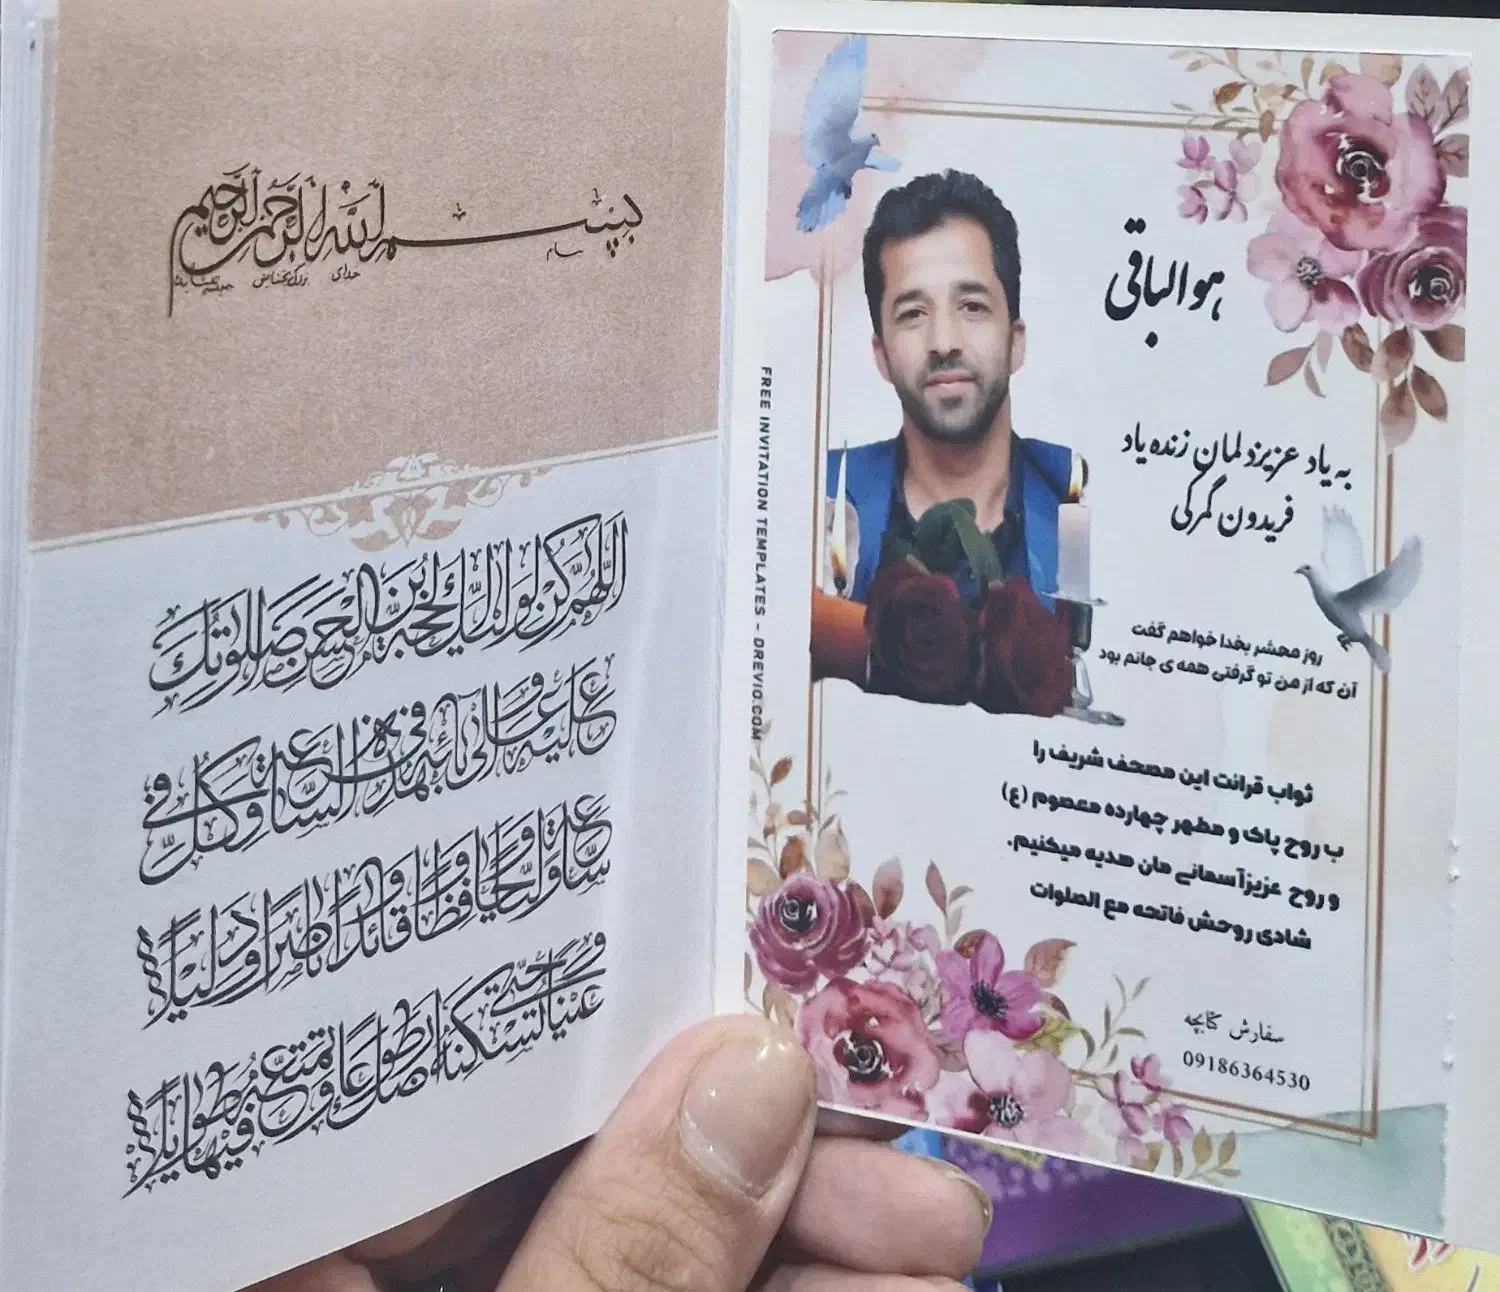 بسم الله الرحمن الرحیم
بنام خدای
اللهم کن لولیک الحجة بن الحسن صلواتک
علیه وعلی آبائه فی هذه الساعة وفی کل
ساعة ولیا وحافظا وقائدا وناصرا ودلیلا
وعینا حتی تسکنه ارضک طوعا وتمتعه فیها طویلا
هوالباقی
به یاد عزیزدلمان زنده یاد
فریدون گمرکی
روز محشر بخدا خواهم گفت
آن که از من تو گرفتی همه ی جانم بود
ثواب قرائت این مصحف شریف را
ب روح پاک و مطهر چهارده معصوم (ع)
و روح عزیزآسمانی مان هدیه میکنیم.
شادی روحش فاتحه مع الصلوات
سفارش کتابچه
09186364530
FREE INVITATION TEMPLATES - DREVIO.COM